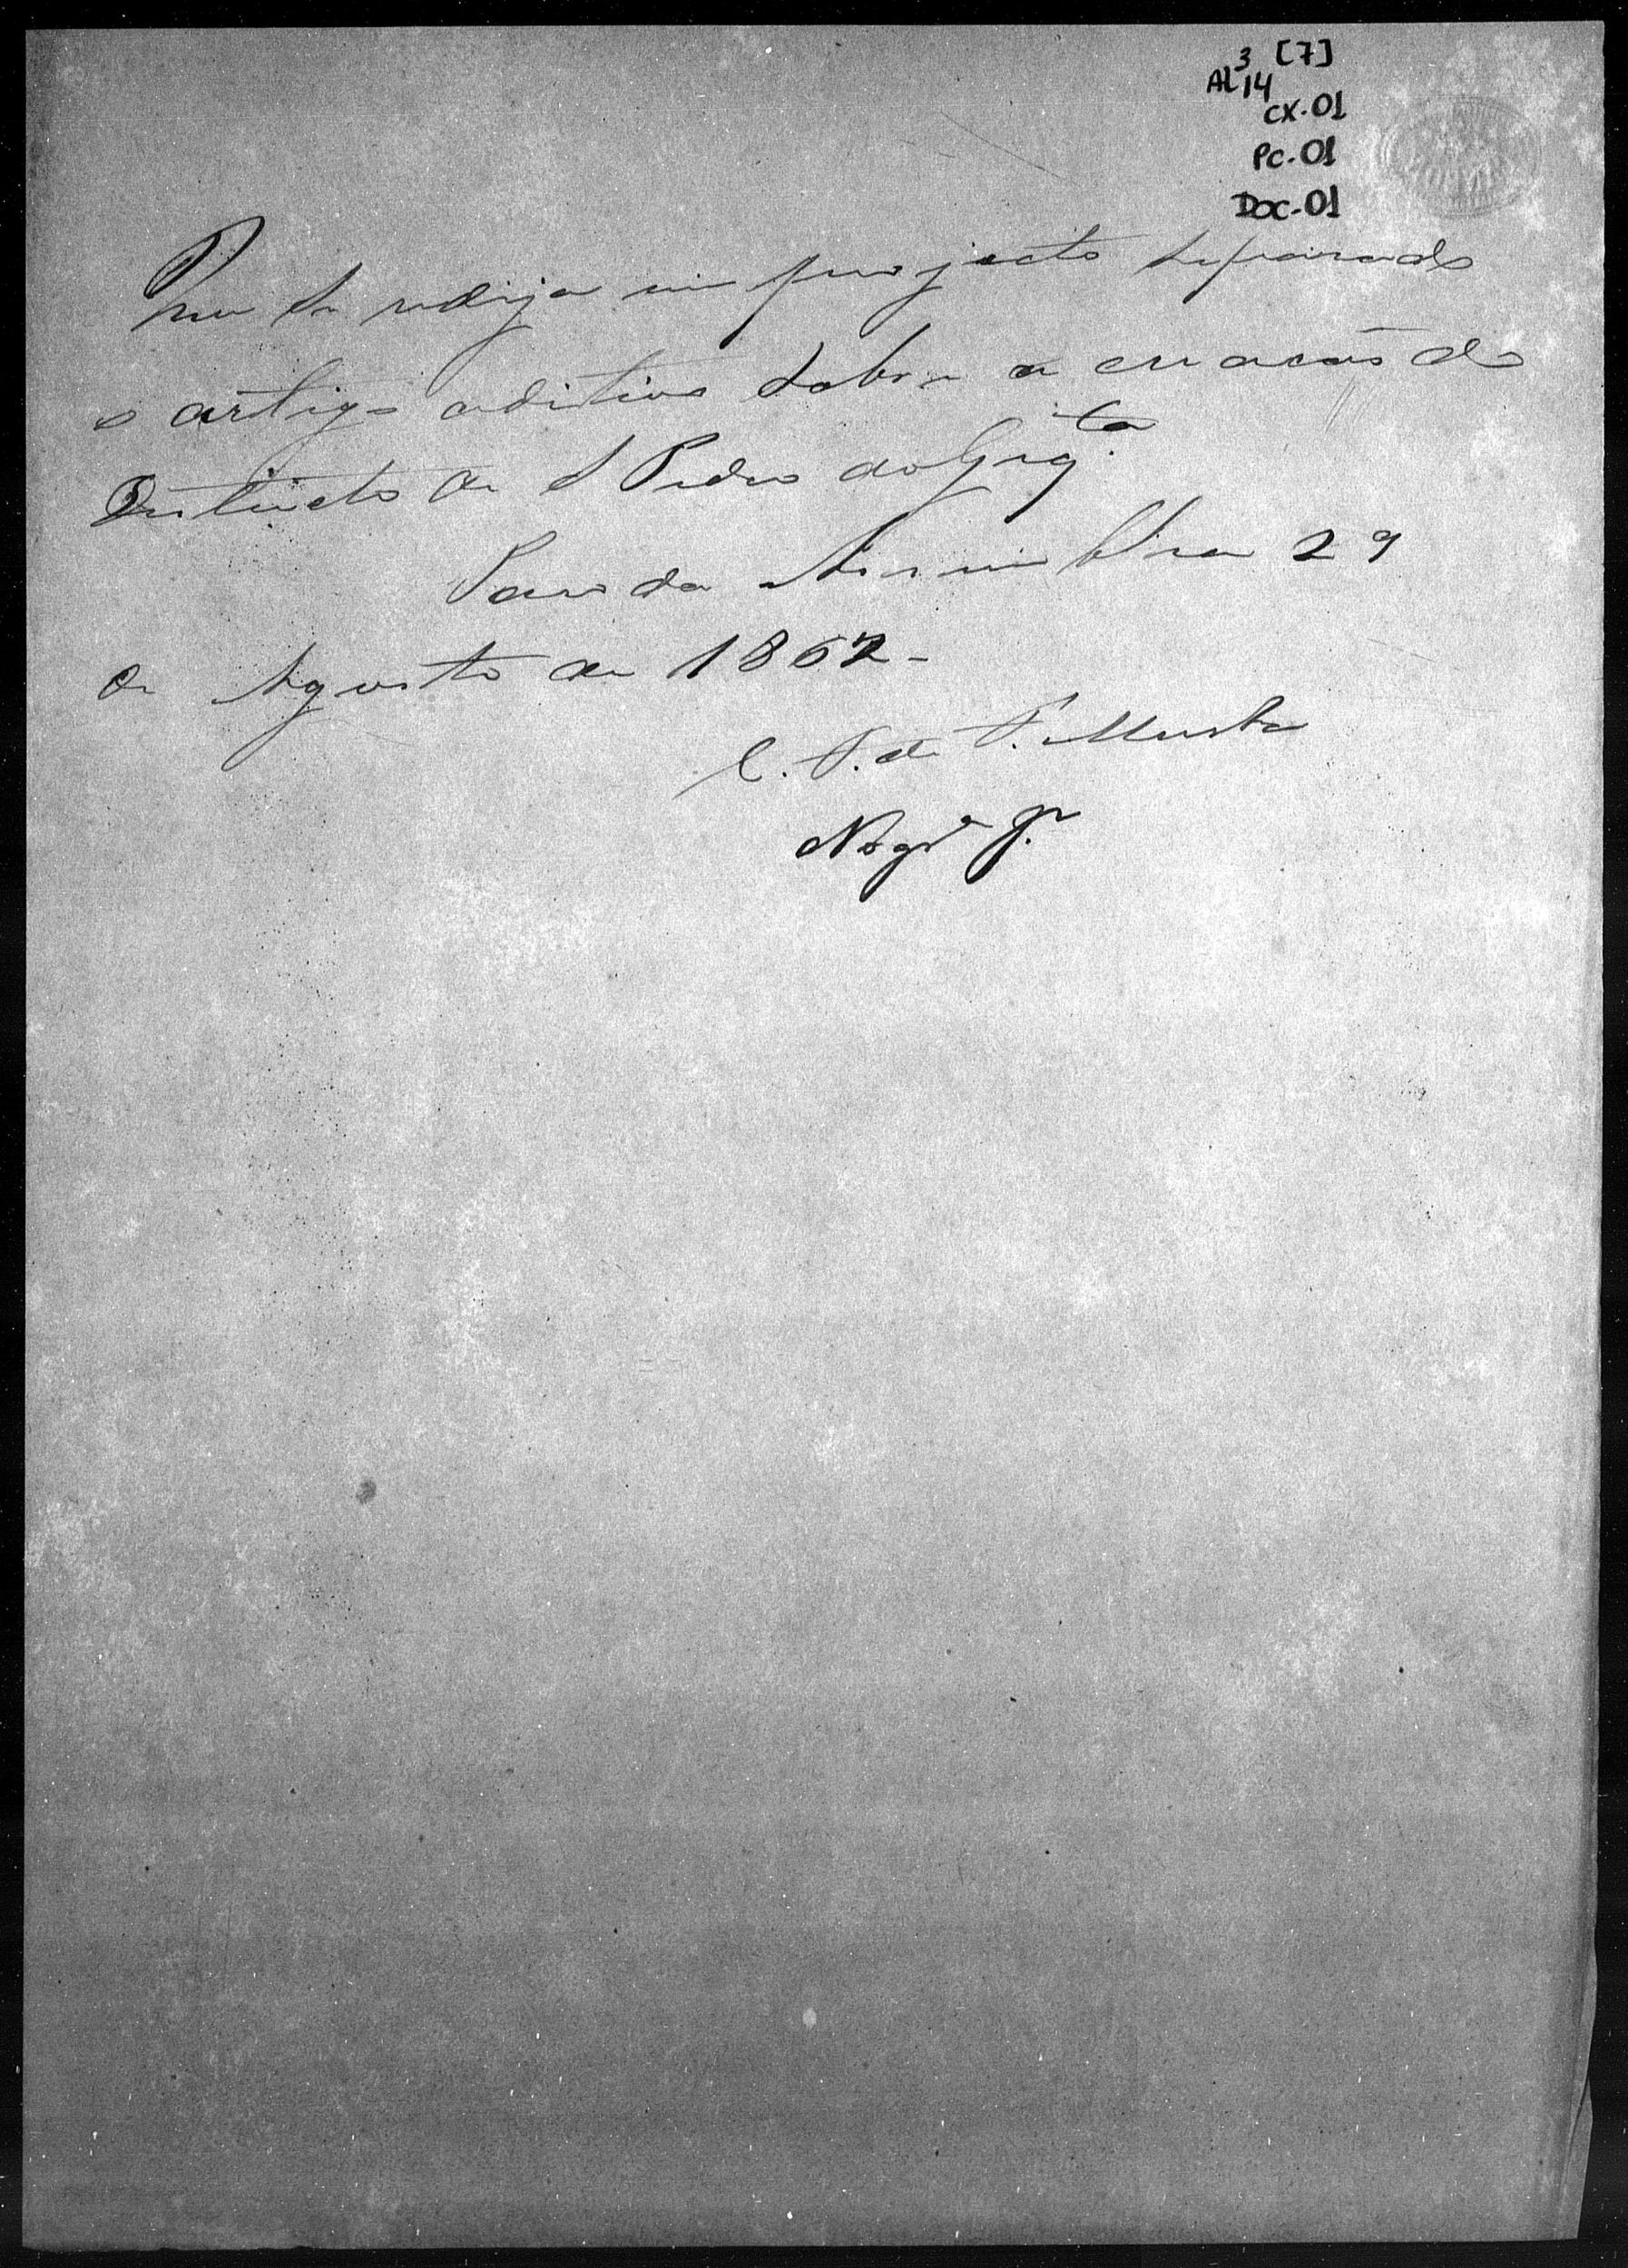 3 [7]
AL 14
CX-01
PC-01
DOC-01
Que se redija em projecto separado
o artigo aditivo sobre a creação do
Districto de S Pedro do
Paço da Assemblea 29
de Agosto de 1862-
C. de